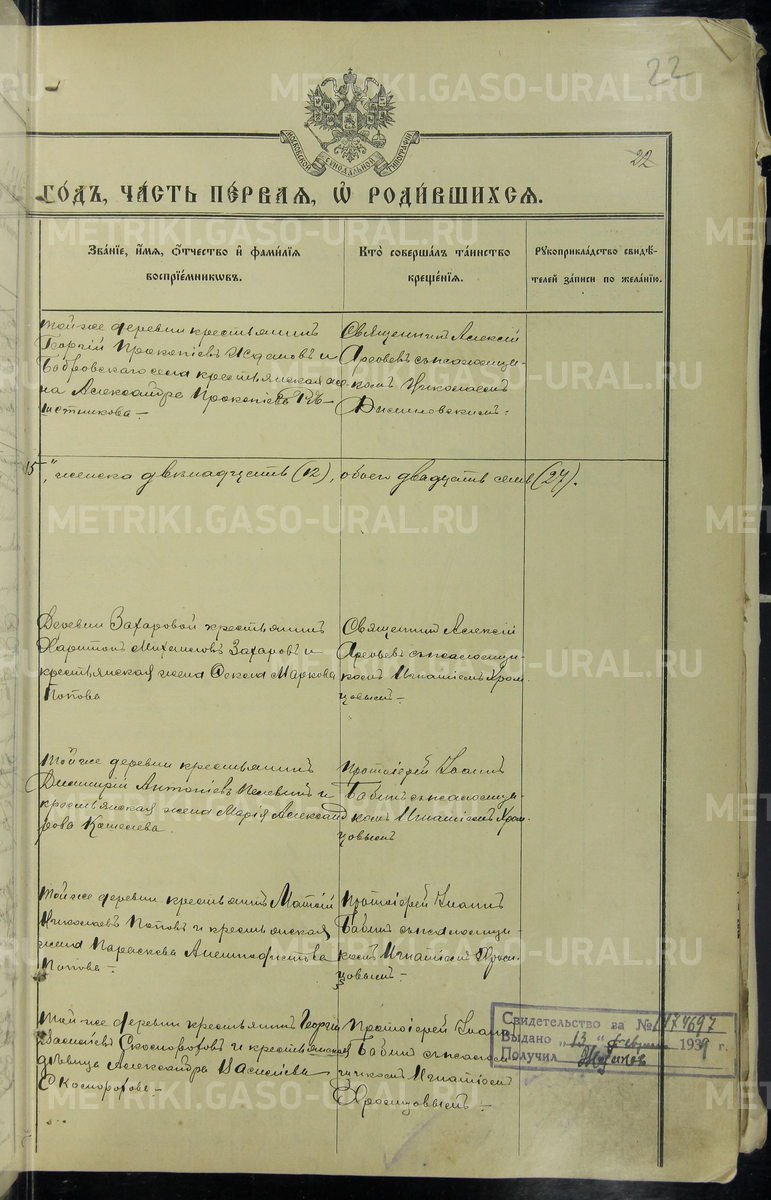 22
МОСКОВСКОЙ СѴНОДАЛЬНОЙ ТИПОГРАФІИ
22
ГО́ДЪ, ЧА́СТЬ ПЕ́РВАЯ, Ѡ҆ РОДИ́ВШИХСЯ.
Зва́ніе, и҆́мя, ѻ҆́тчество и҆ фами́лїя
воспрїе́мникѡвъ.
Кто̀ соверша́лъ та́инство
креще́нїя.
Рꙋкоприкла́дство свидѣ́-
телей за́писи по жела́нїю.
Той же деревни крестьянинъ
Георгій Прокопіевъ и
Бобровскаго села крестьянская
на Александра Прокопіева
Священникъ Алексій
Арефьевъ съ псаломщи-
комъ Николаемъ
15
" женска двенадцать (12), обоего двадцать семь (27).
Деревни Захаровой крестьянинъ
Харитонъ Михаиловъ Захаровъ и
крестьянская жена Фекла Маркова
Попова
Священникъ Алексій
Арефьевъ съ псаломщи-
комъ Игнатіемъ Хром-
цовымъ -
Той же деревни крестьянинъ
Димитрій Антоніевъ и
крестьянская жена Марія Александ
рова Кошелева
Протоіерей Іоаннъ
Бабинъ съ псаломщи-
комъ Игнатіемъ Хром-
цовымъ
Той же деревни крестьянинъ
Николаевъ Поповъ и крестьянская
жена Параскева
Попова -
Протоіерей Іоаннъ
Бабинъ съ псаломщи-
комъ Игнатіемъ Хром-
цовымъ -
Той же деревни крестьянинъ Георгій
Василіевъ Скоспоротовъ и крестьянская
дѣвица Александра Василіева
Скоспоротова -
Протоіерей Іоаннъ
Бабинъ съ псалом
щикомъ Игнатіемъ
Хромцовымъ -
Свидетельство за №
Выдано „13“ февраля 1939 г.
Получил
METRIKI.GASO-URAL.RU